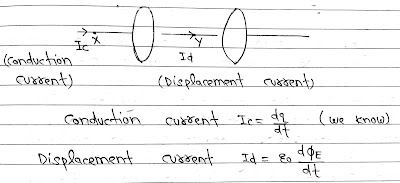 Ic X Id Y
(Conduction (Displacement current)
current)
Conduction current Ic = dq/dt (we know)
Displacement current Id = ε0 dϕE/dt